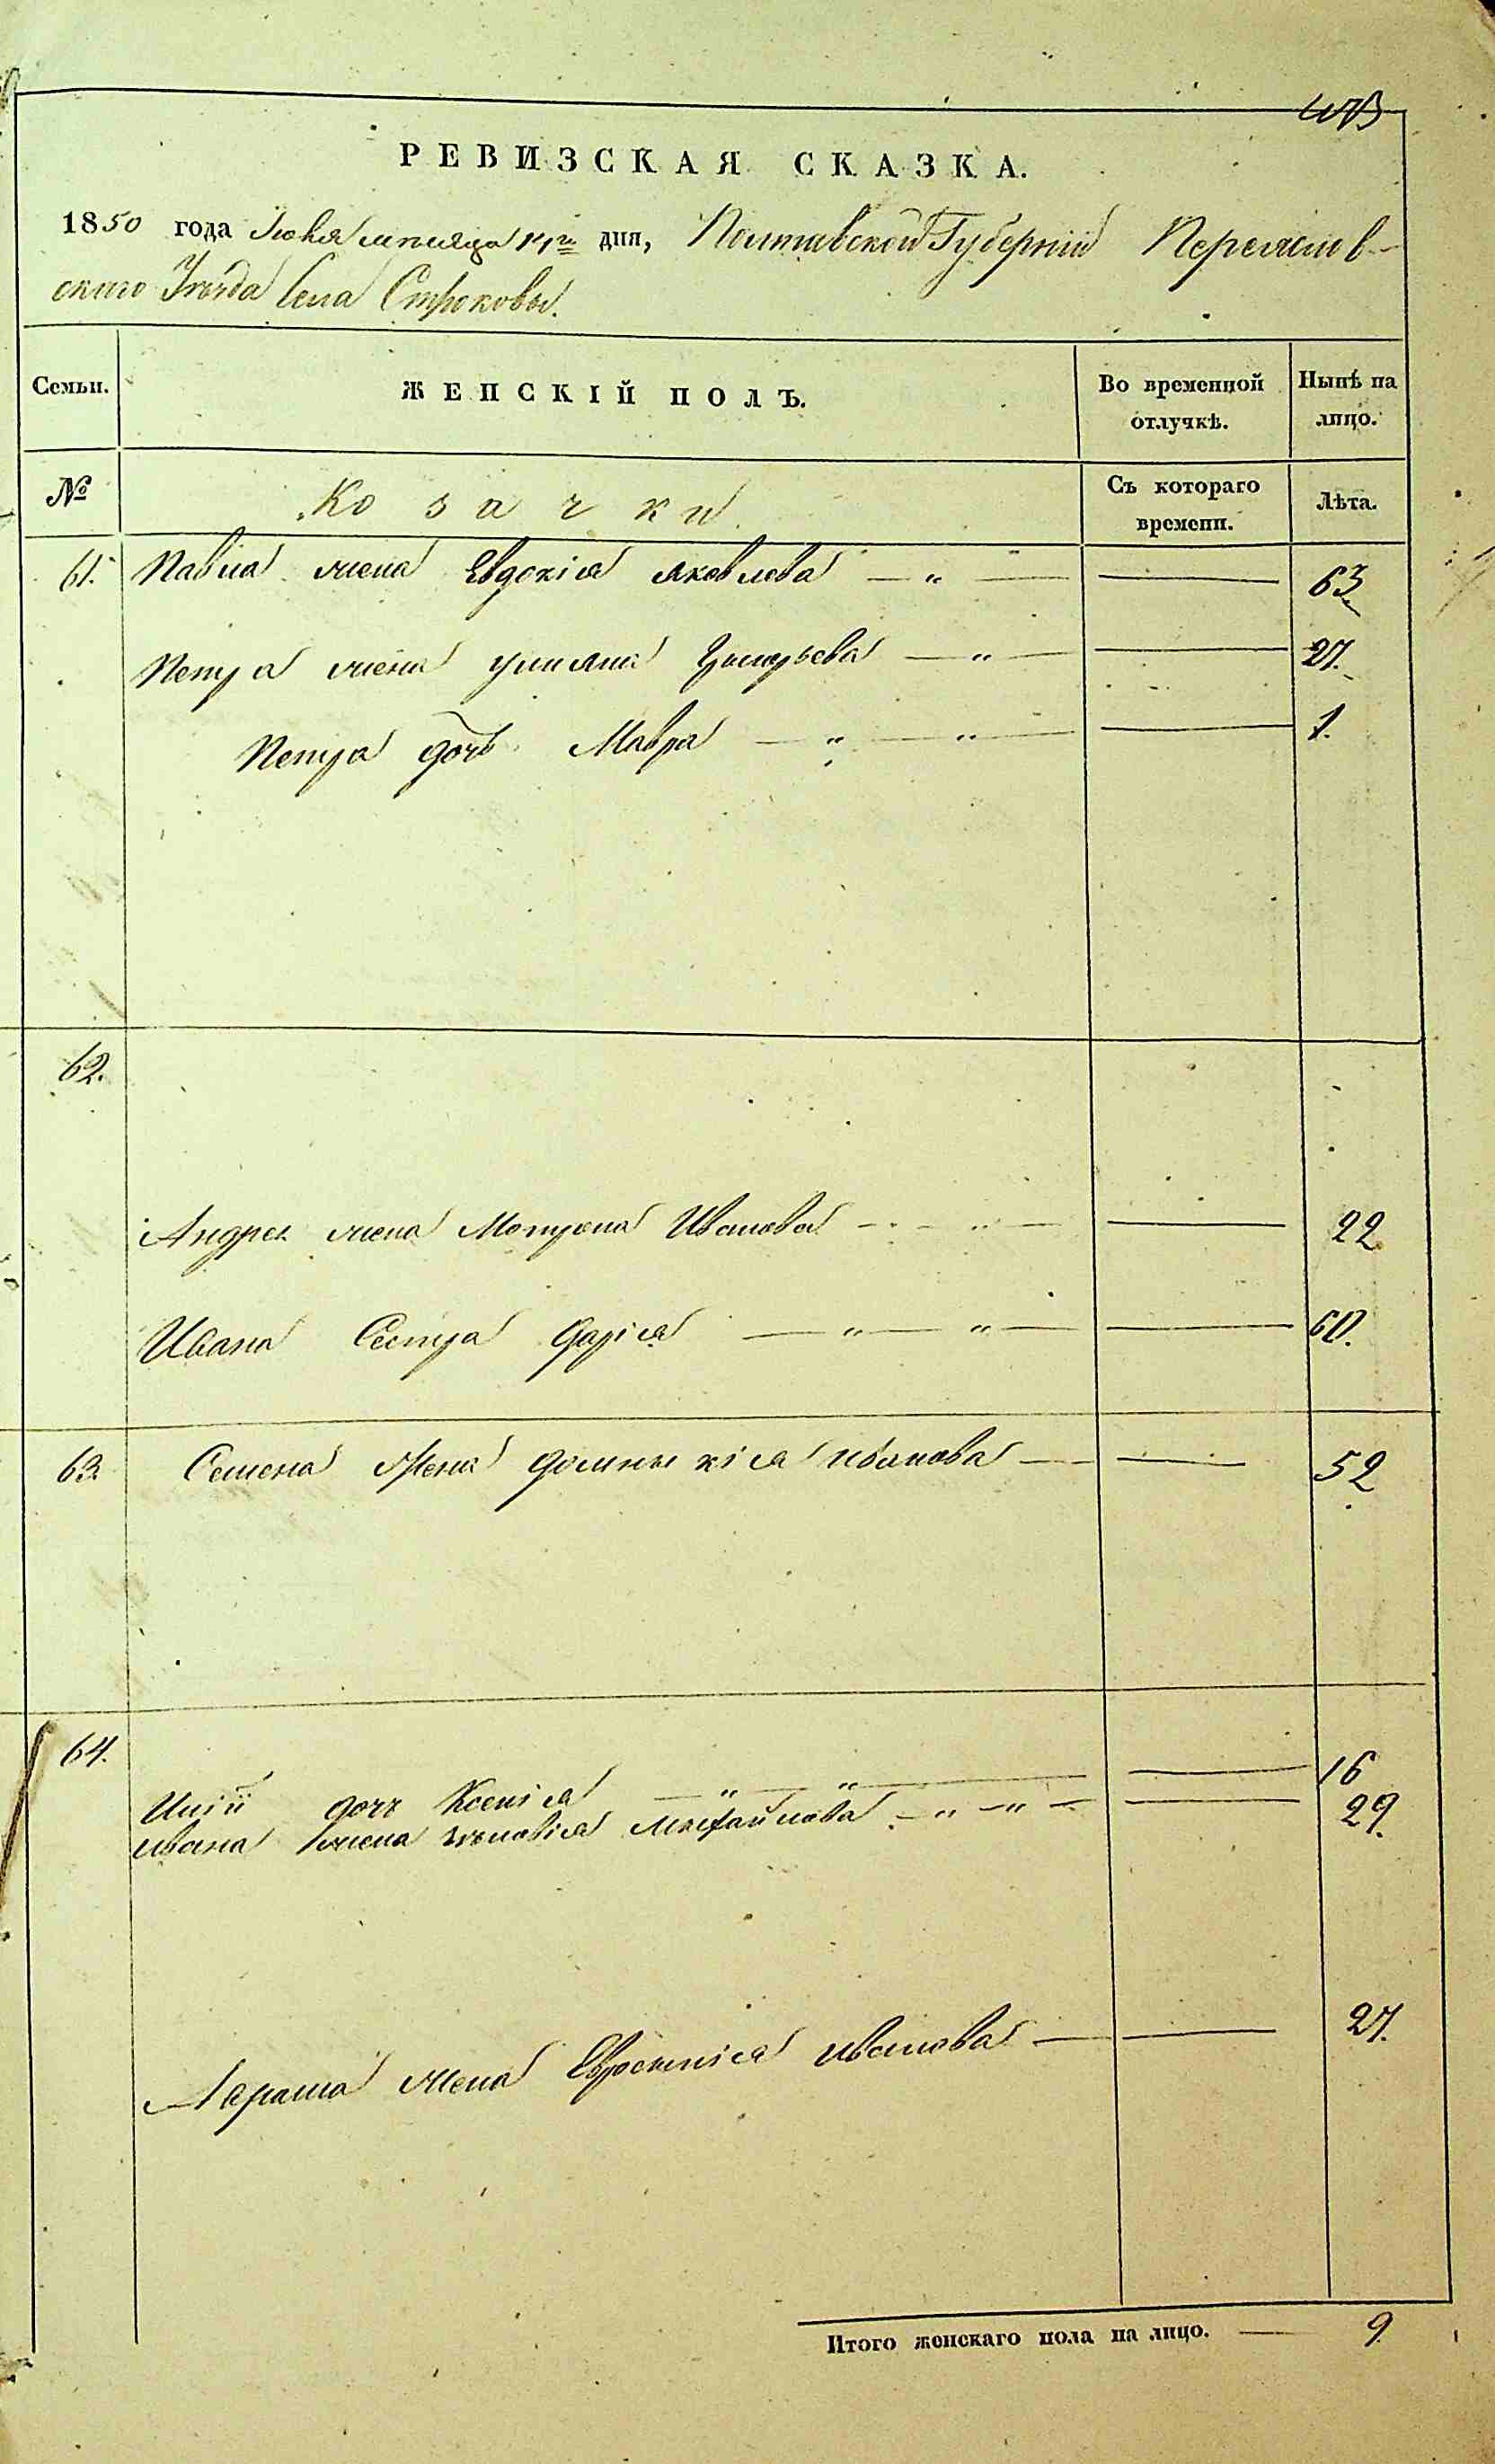 РЕВИЗСКАЯ СКАЗКА.
1850 года Июня месяца дня, Полтавской Губерніи Переяслов-
скаго Уезда Села Строковы.
Семьи. ЖЕНСКІЙ ПОЛЪ. Во временной отлучкѣ. Нынѣ на лицо.
№ Козачки Съ котораго времени. Лѣта.
61. Павла жена Евдокія Яковлева — „ — — 63
Петра жена Улияна Григорьева — „ — — 27.
Петра дочь Мавра — „ — „ — — 1.
62.
Андрея жена Мотрона Иванова — „ — — 22
Ивана Сестра Дарія — „ — „ — — 60.
63. Семена Жена Домникія Иванова — — 52
64.
дочь Ксенія — „ — „ — — 16
Ивана жена Зеновія Михайлова — „ — „ — — 29.
жена Евросинія Иванова — — 27.
Итого женскаго пола на лицо. — 9.